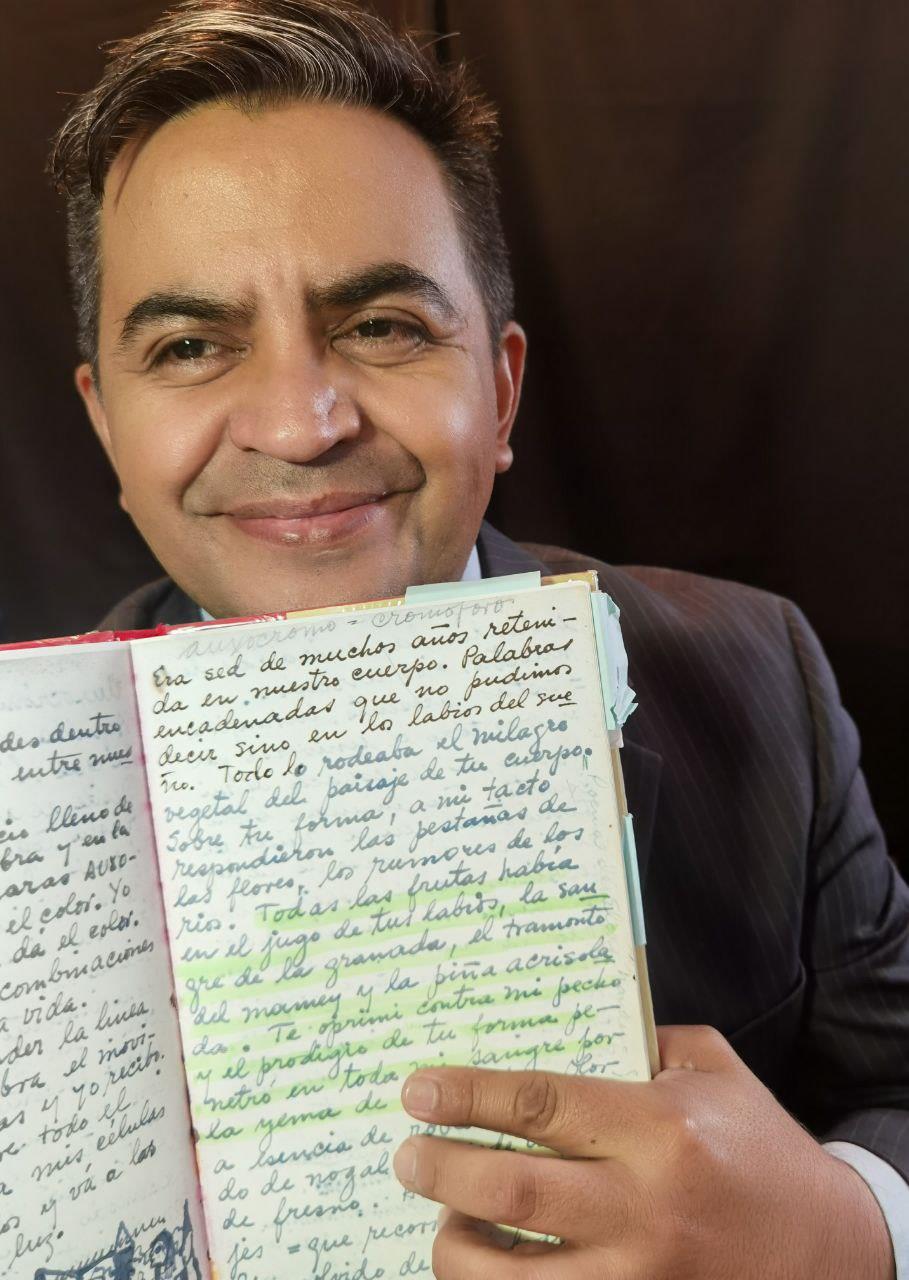 des dentro
entre nues
cio lleno de
bra y en la
aras AUXO-
el color. Yo
da el color.
combinaciones
a vida.
der la linea
bra el movi-
as y yo recibo.
todo el
a mis células
os y vá a las
luz.
auxocromo = cromoforo
Era sed de muchos años reteni-
da en nuestro cuerpo. Palabras
encadenadas que no pudimos
decir sino en los labios del sue
ño. Todo lo rodeaba el milagro
vegetal del paisaje de tu cuerpo.
Sobre tu forma, a mi tacto
respondieron las pestañas de
las flores, los rumores de los
rios. Todas las frutas había
en el jugo de tus labios, la san
gre de la granada, el tramonto
del mamey y la piña acrisola
da. Te oprimí contra mi pecho
y el prodigio de tu forma pe-
netró en toda mi sangre por
la yema de
olor
a esencia de
do de nogal
de fresno.
jes = que recorr
olvido de